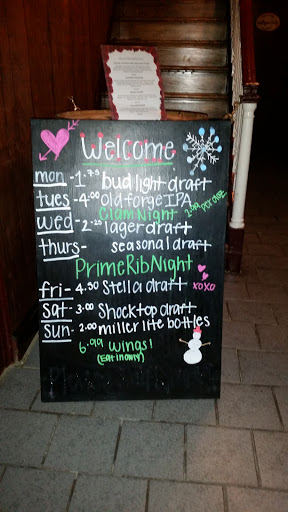 Welcome
mon - 1.75 bud light draft
tues - 4.00 old forge IPA
Clam Night 2.99 per doz
wed - 2.25 lager draft
thurs - seasonal draft
Prime Rib Night
xoxo
fri - 4.50 Stella draft
Sat - 3.00 Shocktop draft
Sun - 2.00 miller lite bottles
6.99 wings!
(Eat in only)